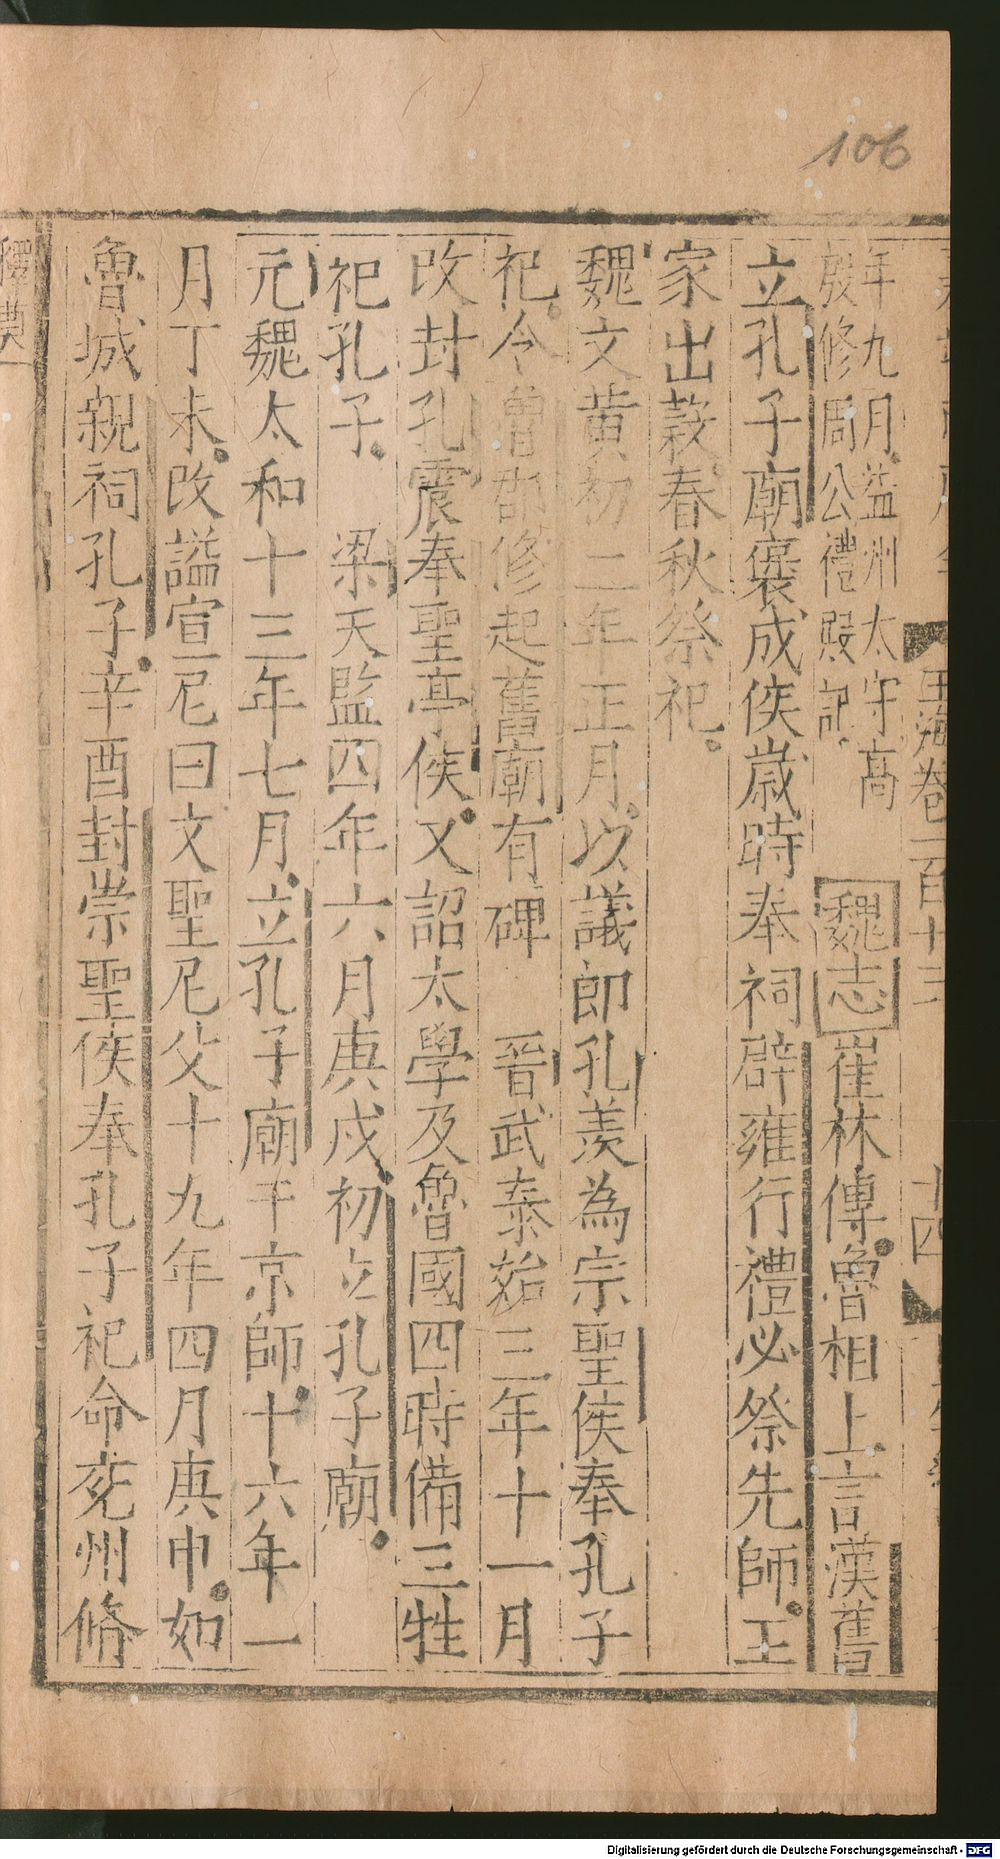 106
玉海卷一百十三
十四
年九月益州太守高
䏻修周公禮殿記
魏志崔林傳魯相上言漢舊
立孔子廟襃成侯歲時奉祠辟雍行禮必祭先師王
家出穀春秋祭祀
魏文黃初二年正月以議郎孔羨為宗聖侯奉孔子
祀令魯郡修起舊廟有碑　晉武泰始三年十一月
改封孔震奉聖亭侯又詔太學及魯國四時備三牲
祀孔子　梁天監四年六月庚戌初立孔子廟
元魏太和十三年七月立孔子廟于京師十六年一
月丁未改謚宣尼曰文聖尼父十九年四月庚申如
魯城親祠孔子辛酉封崇聖侯奉孔子祀命兗州脩
Digitalisierung gefördert durch die Deutsche Forschungsgemeinschaft - DFG